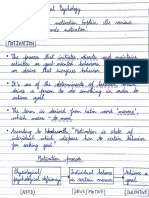 Psychology
motivation. Explain the various
motivation'.
MOTIVATION
• The process that initiates, directs and maintains
activities or goal oriented behavior
or desires that energises behavior
• It's one of the determinants of behavior which
directs an individual's behaviour towards a
goal
• The term is derived from latin word 'movere',
which means - to move.
• According to Woodworth, "Motivation is state of
individual which disposes him to certain behavior
for seeking goal".
Motivation process
Physiological/ psychological deficiency
Individual behaves in certain manner
Achieves a goal
(NEED) (DRIVE/MOTIVE) (INCENTIVE)